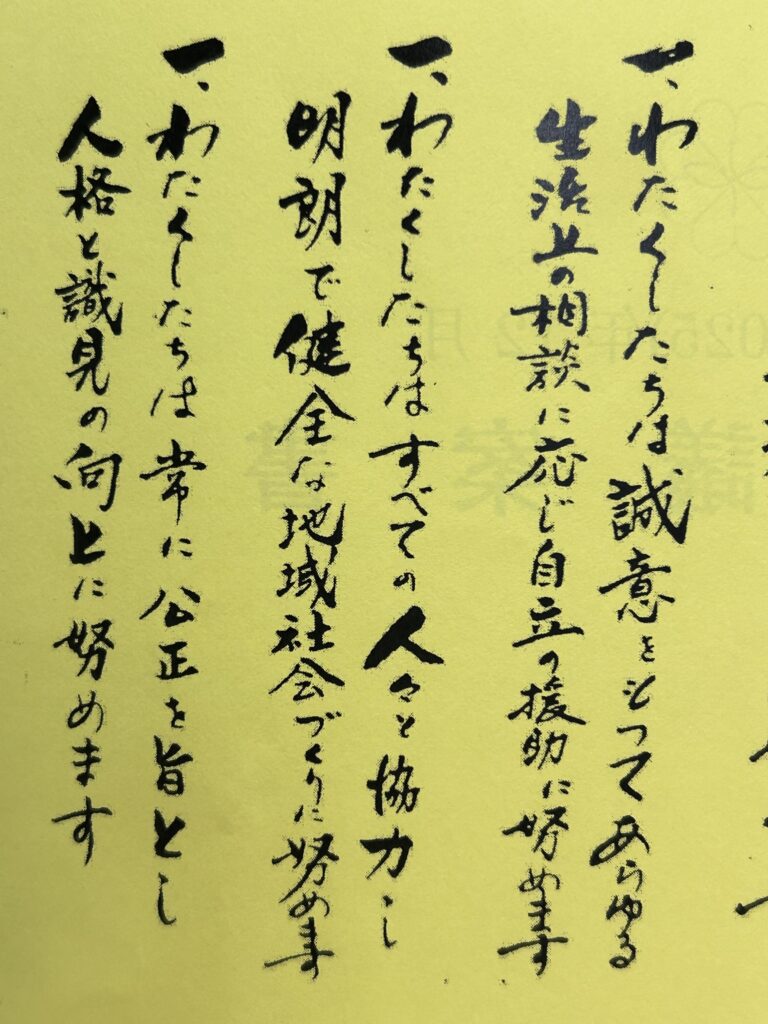 一、わたくしたちは誠意をもってあらゆる
生活上の相談に応じ自立の援助に努めます
一、わたくしたちはすべての人々と協力し
明朗で健全な地域社会づくりに努めます
一、わたくしたちは常に公正を旨とし
人格と識見の向上に努めます